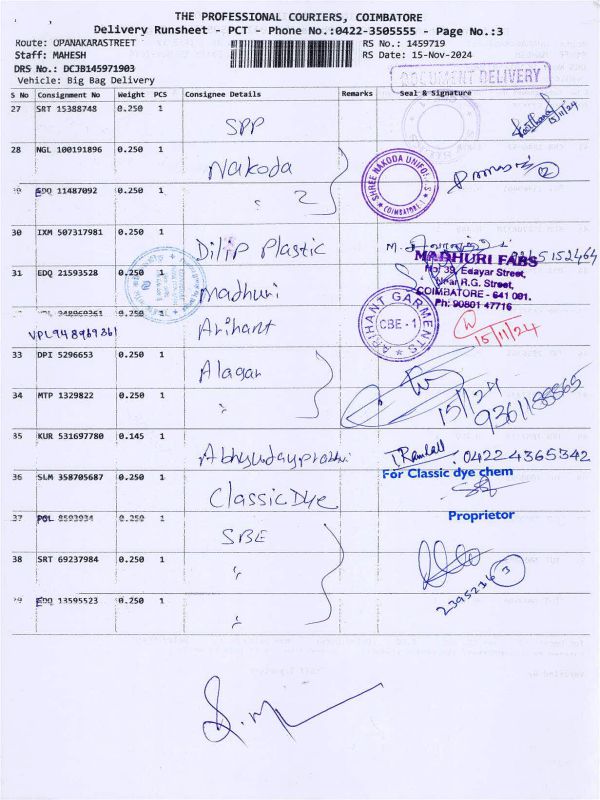 THE PROFESSIONAL COURIERS, COIMBATORE
Delivery Runsheet - PCT - Phone No.:0422-3505555 - Page No.:3
Route: OPANAKARASTREET RS No.: 1459719
Staff: MAHESH RS Date: 15-Nov-2024
DRS No.: DCJB145971903
Vehicle: Big Bag Delivery
DOCUMENT DELIVERY
S No Consignment No Weight PCS Consignee Details Remarks Seal & Signature
27 SRT 15388748 0.250 1
SPP
15/11/24
28 NGL 100191896 0.250 1
Nakoda
SHREE NAKODA UNIFORMS
COIMBATORE-1
EDQ 11487092 0.250 1
" 2
2
30 IXM 507317981 0.250 1
Dilip Plastic
31 EDQ 21593528 0.250 1
Madhuri
MADHURI FABS
No: 39, Edayar Street,
Near R.G. Street,
COIMBATORE - 641 001.
Ph: 90801 47716
0.250 1
VPL948969361
Arihant
ARIHANT GARMENTS
CBE - 1
15/11/24
33 DPI 5296653 0.250 1
Alagar
34 MTP 1329822 0.250 1
"
15/11/24
9361188865
35 KUR 531697780 0.145 1
Abhyudayprabhu
04224365342
36 SLM 358705687 0.250 1
Classic Dye
For Classic dye chem
Proprietor
37 PGL 8593934 0.250 1
SBE
38 SRT 69237984 0.250 1
"
3
2395216
EDQ 13595523 0.250 1
"